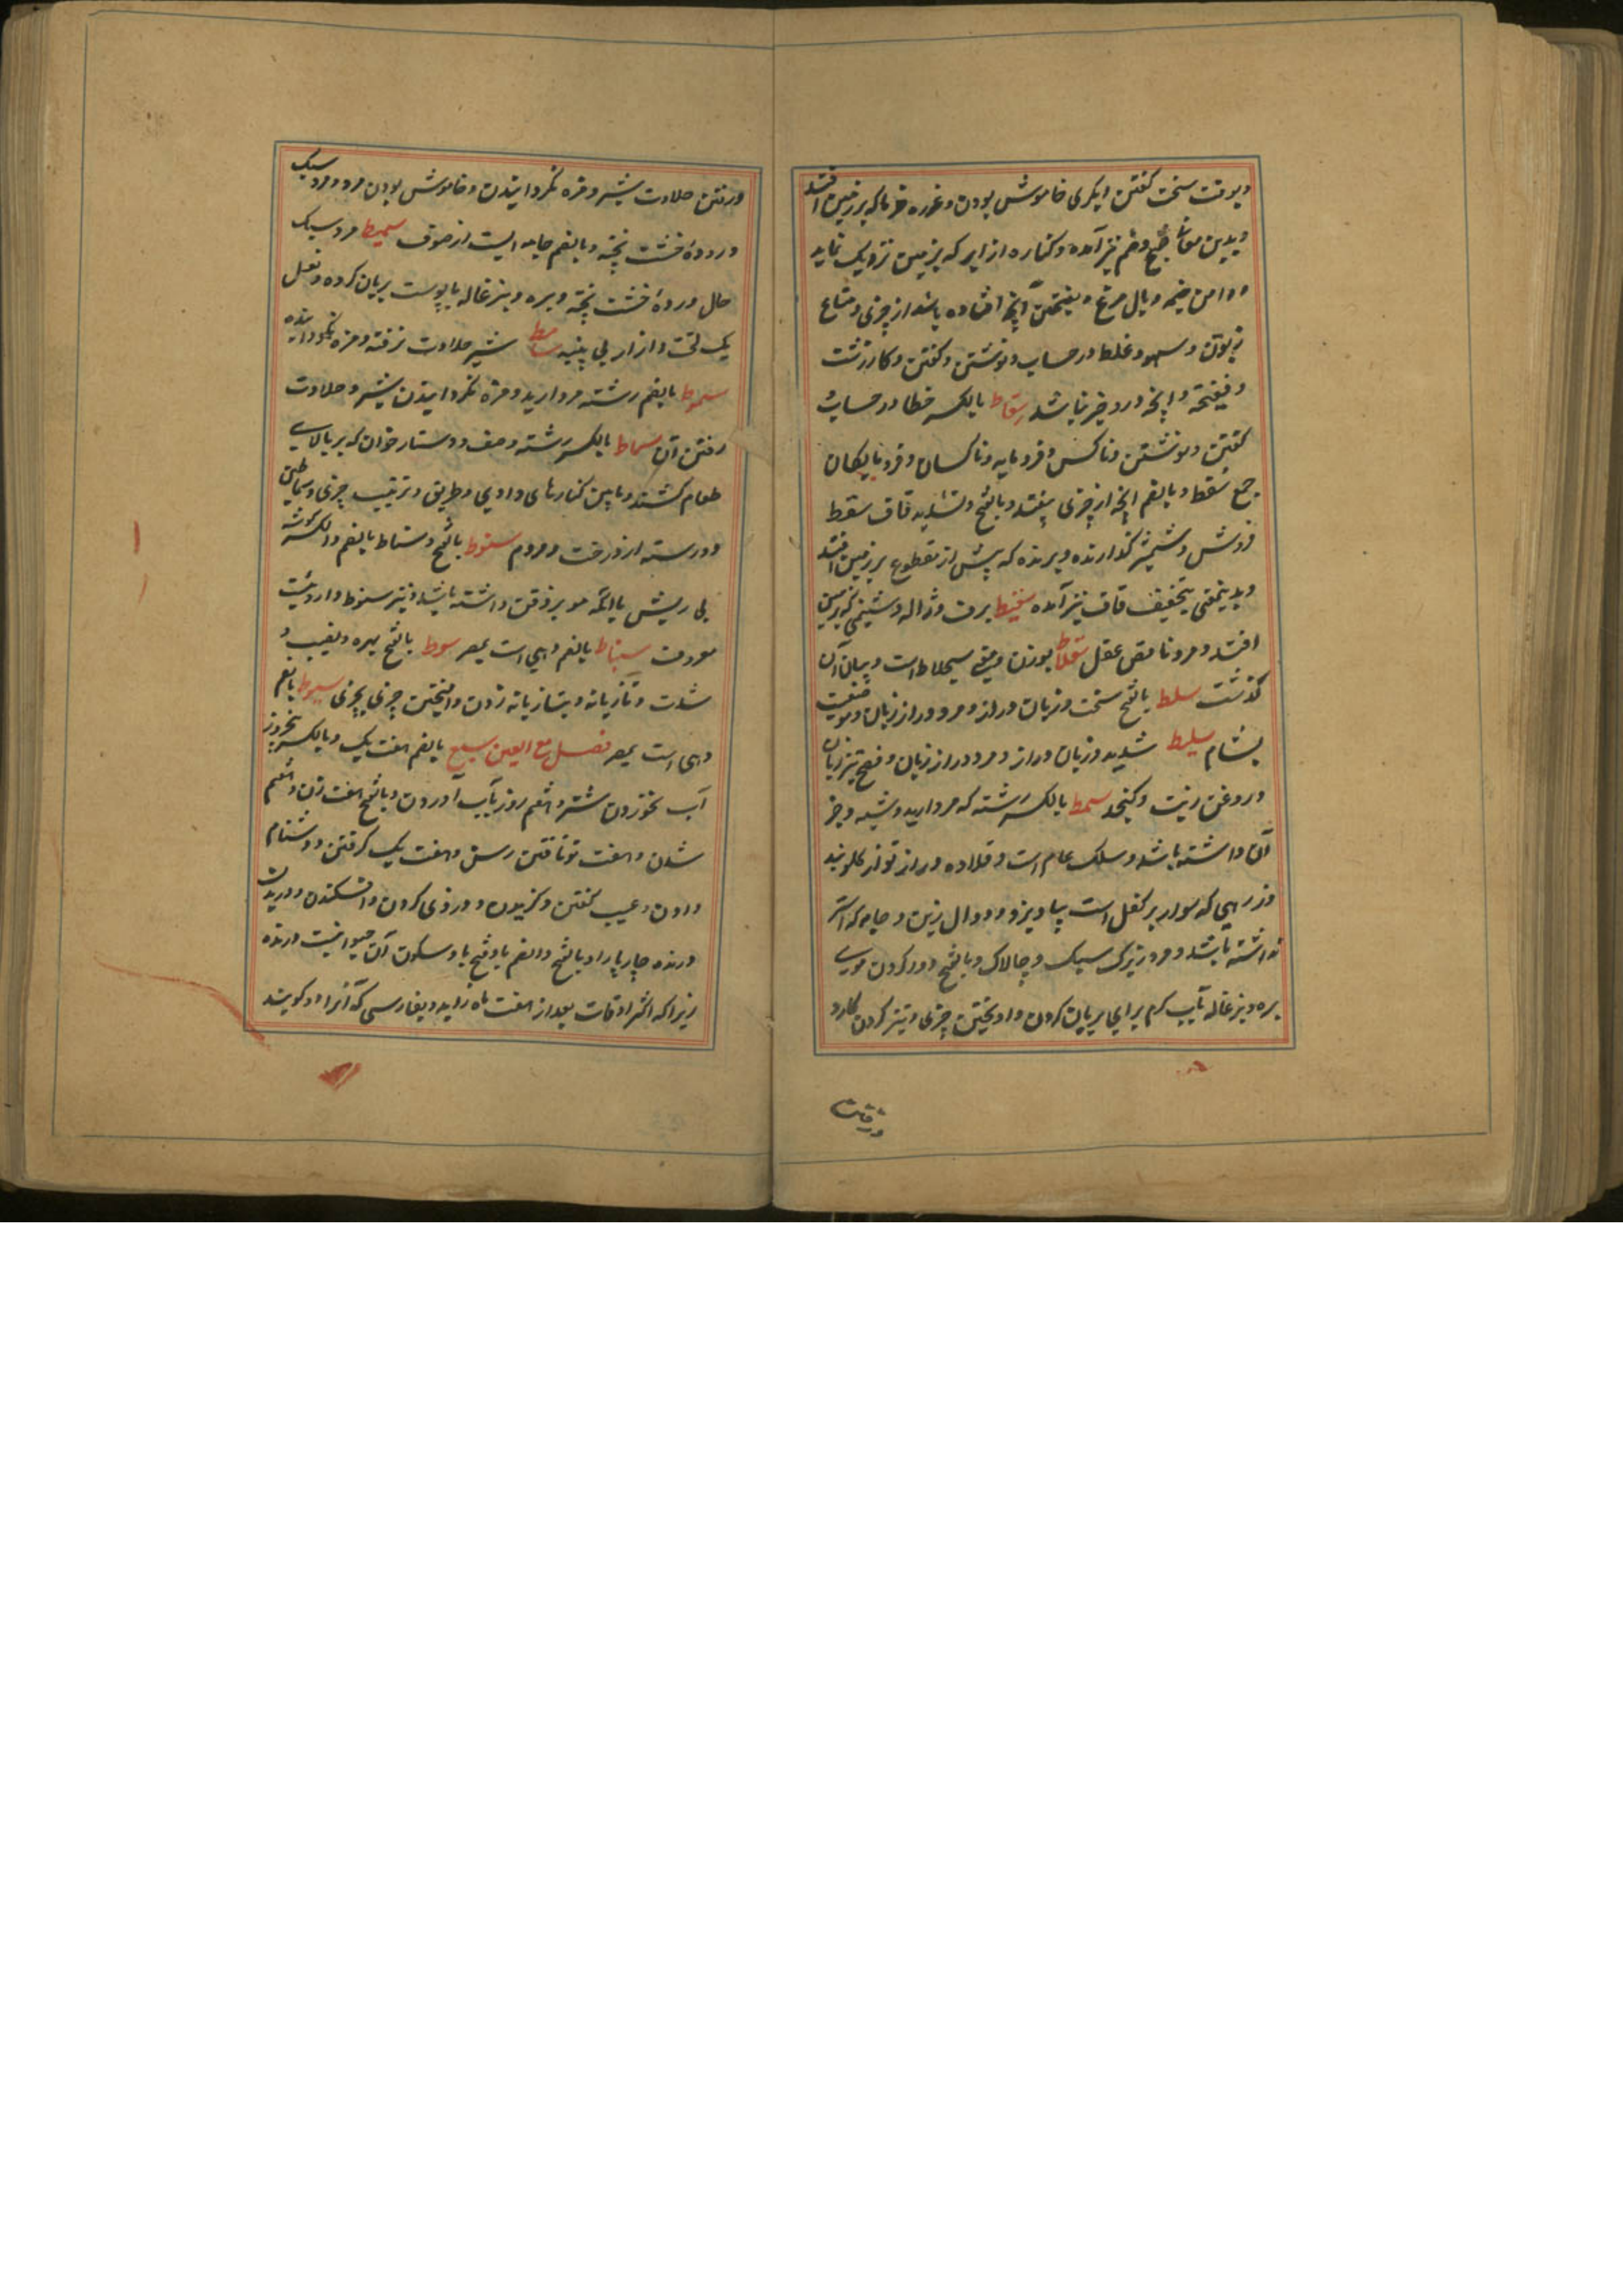 و بوقت سخت کفتن ایکری خاموش بودن و غوره خرما که بر زمین افتد
و بدین معانی فتح و ضم نیز آمده و کناره از ابر که بزمین نزدیک نماید
و دامن خیمه و بال مرغ و بفتحتین آنچه افتاده باشد از چیزی و متاع
زبون و سهو و غلط در حساب و نوشتن و کفتن و کار زشت
و فیضحة و آنچه درو خیر نباشد سقاط بالکسر خطا در حساب و
کفتن و نوشتن و ناکس و فرومایه و ناکسان و فرومایکان
جمع سقط و بالضم آنچه از چیزی بیفتد و بالفتح و تشدید قاف سقط
فروش و شمشیر کذارنده و برنده که پیش از مقطوع بر زمین افتد
و بدینمعنی بتخفیف قاف نیز آمده سقیط برف و ژاله و شبنمی که بر زمین
افتد و مرد ناقص عقل سقلاط بوزن و معنی سجلاط است و بیان آن
کذشت سلط بالفتح سخت و زبان دراز و مرد دراز زبان و موضعیست
بشام سلیط شدید و زبان دراز و مرد دراز زبان و فصیح تیز زبان
و روغن زیت و کنجد سمط بالکسر رشته که مروارید و شبه و جز
آن داشته باشد و سلک عام است و قلاده دراز تر از کلوبند
و زرهی که سوار بر کفل است بیاویزد و دوال زین و جامه که استر
نداشته باشد و مرد زیرک سبک و چالاک و بالفتح دور کردن موی
بره و بزغاله بآب کرم برای بریان کردن و آویختن چیزی و تیز کردن کارد
ورفتن
ورفتن حلاوت شیر و مزه نکردانیدن و خاموش بودن مرد و مرد سبک
و رده خشت پخته و بالضم جامه ایست از صوف سمیط مرد سبک
حال و رده خشت پخته و بره و بزغاله با پوست بریان کرده و نعل
یک لخت و ازار بی پنبه سامط شیر حلاوت نرفته و مزه نکردانیده
سموط بالضم رشته مروارید و مزه نکردانیدن شیر و حلاوت
رفتن آن سماط بالکسر رشته و صف و دستار خوان که بر بالای
طعام کشند و مابین کنارهای وادی و طریق و ترتیب چیزی و سماطین
دو رسته از درخت و مردم سنوط بالفتح و سناط بالضم والکسر کوسه
بی ریش یا آنکه مو بر ذقن داشته باشد و نیز سنوط داروئیست
معروف سنباط بالضم دهی است بمصر سوط بالفتح بهره و نصیب و
شدت و تازیانه و بتازیانه زدن و آمیختن چیزی بچیزی سیوط بالضم
دهی است بمصر فصل مع العین سبع بالضم هفت یک و بالکسر نخروز
آب نخوردن شتر و هفتم روز بآب آوردن و بالفتح هفت زن و هفتم
شدن و هفت تو تافتن رسن و هفت یک کرفتن و دشنام
دادن و عیب کفتن و کزیدن و دزدی کردن و افکندن و دریدن
درنده چارپا را و بالفتح والضم با و فتح با و سکون آن حیوانیست درنده
زیرا که اکثر اوقات بعد از هفت ماه زاید و بفارسی که آنرا دد کویند